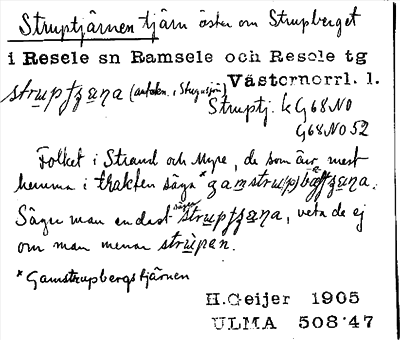 Struptjärnen tjärn öster om Strupberget
i Resele sn Ramsele och Resele tg
Västernorrl. l.
struptʃæna (antekn. i Stugusjön)
Struptj. k G68NO
G68NO52
Folket i Strand och Myre, de som är mest
hemma i trakten säga *gamstrupbærʃʃæna.
Säger man endast strupʃʃæna, veta de ej
om man menar strupan.
*Gamstrupbergstjärnen
H.Geijer 1905
ULMA 508:47